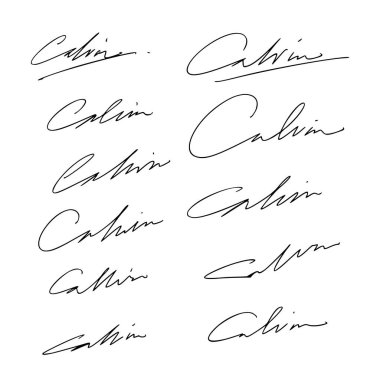 Calvin
Calvin
Calvin
Calvin
Calvin
Calvin
Calvin
Calvin
Calvin
Calvin
Calvin
Calvin